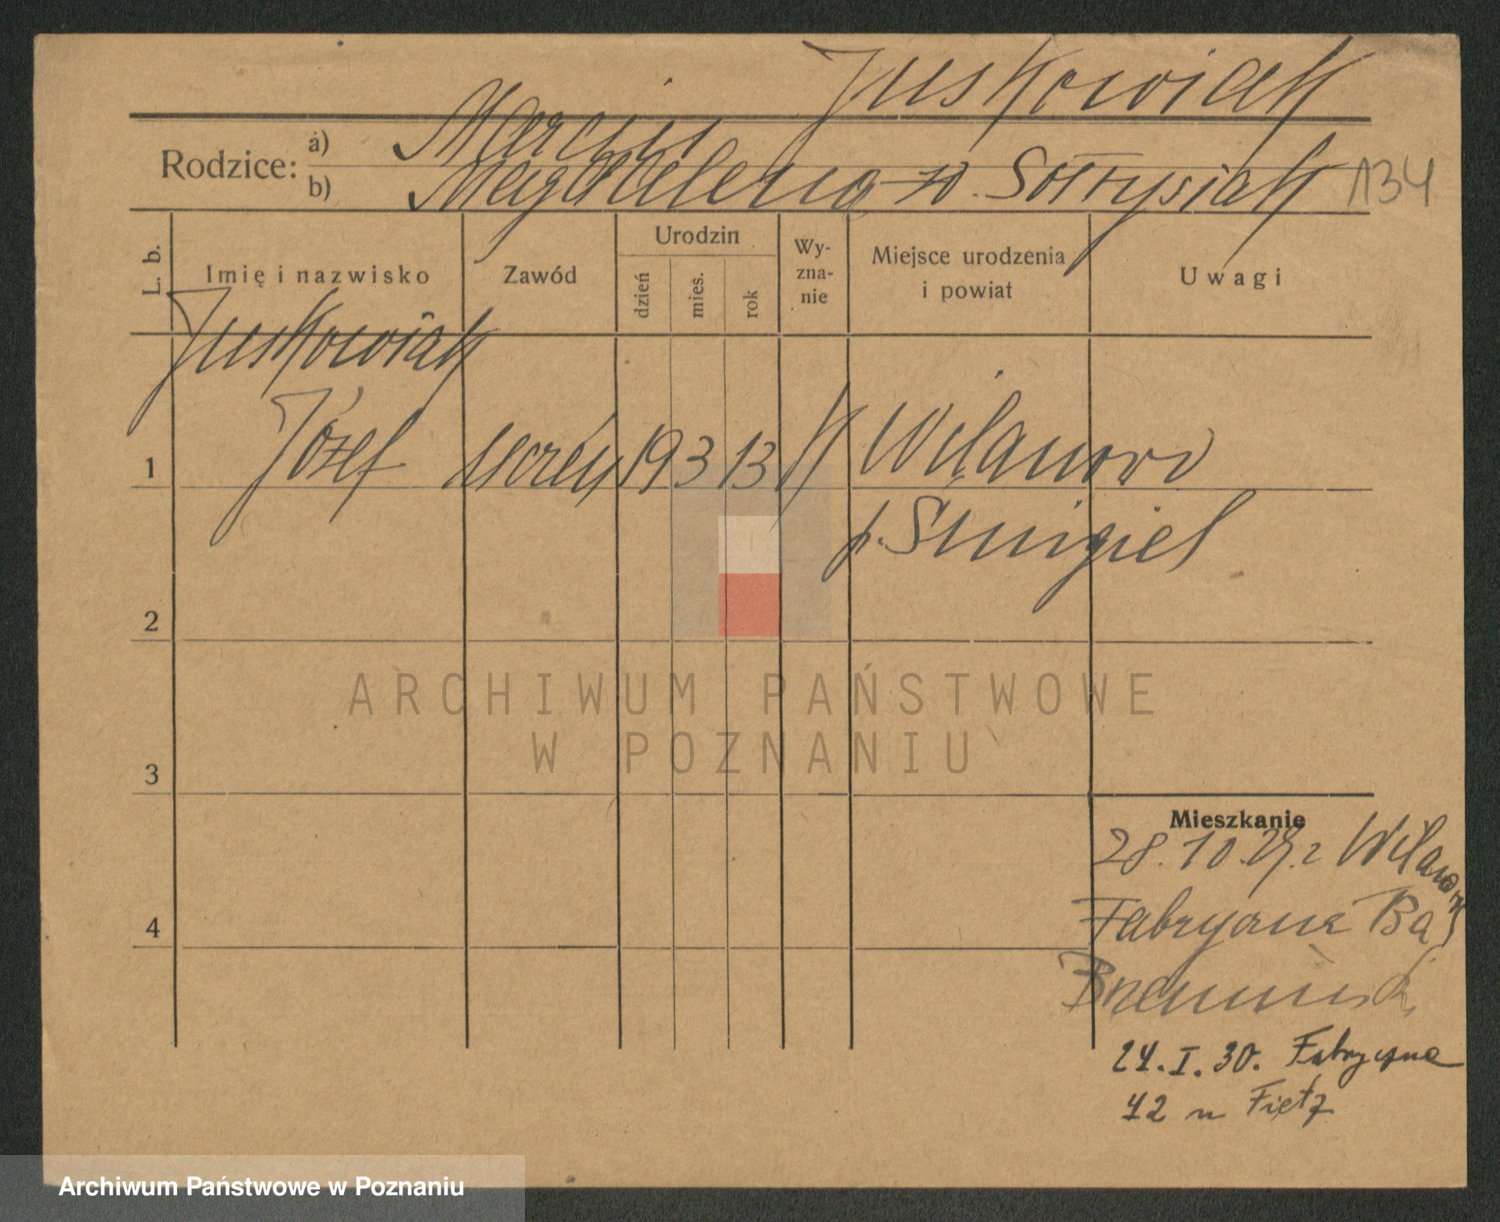 Juskowiak
Rodzice: a) Marcin
b) Magdalena z d. Sołtysiak 134
L. b. Imię i nazwisko Zawód Urodzin dzień mies. rok Wy-zna-nie Miejsce urodzenia i powiat Uwagi
Juskowiak
1 Józef uczeń 19 3 13 k Wilanowo
p. Śmigiel
2
ARCHIWUM PAŃSTWOWE
W POZNANIU
3
Mieszkanie
28.10.29. z Wilanowa
Fabryczna
4
24.I.30. Fabryczna
42 u Fietz
Archiwum Państwowe w Poznaniu